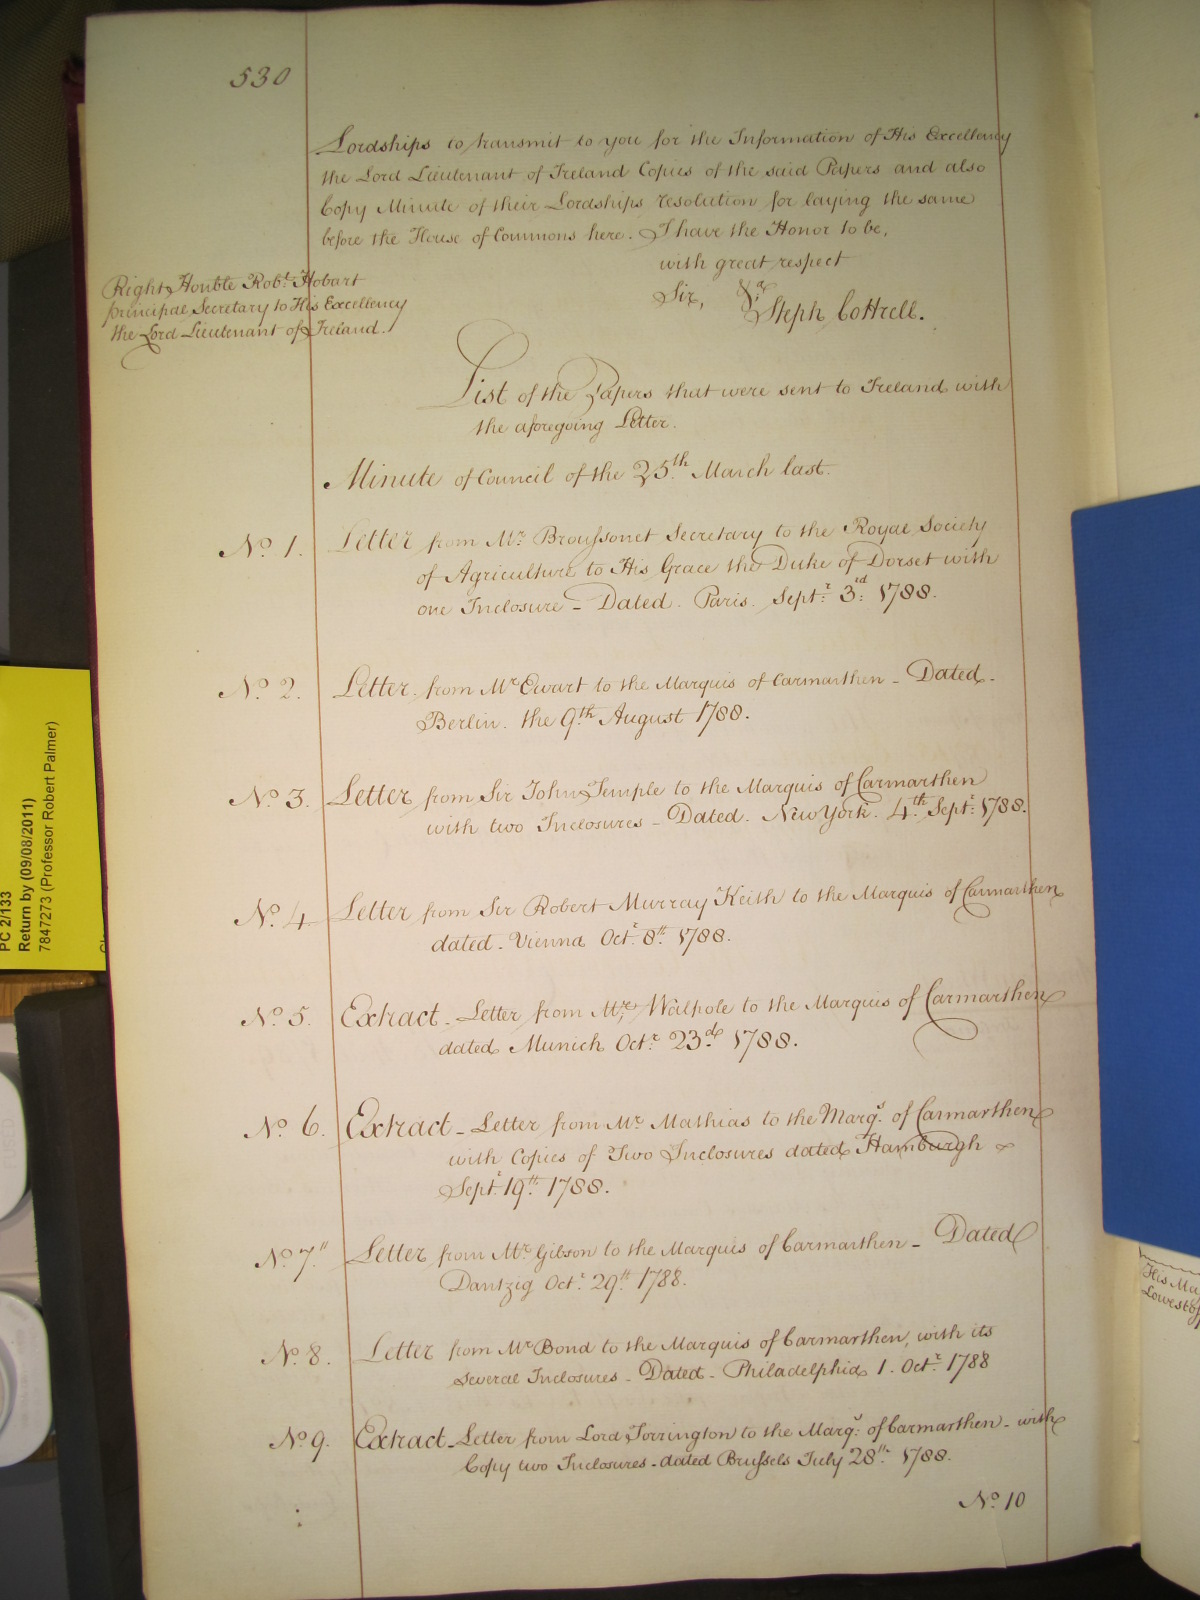 530
Lordships to transmit to you for the Information of His Excellency
the Lord Lieutenant of Ireland Copies of the said Papers and also
Copy Minute of their Lordships resolution for laying the same
before the House of Commons here. I have the Honor to be,
with great respect
Sir, &ca
Steph Cottrell.
Right Honble Robt. Hobart
principal Secretary to His Excellency
the Lord Lieutenant of Ireland.
List of the Papers that were sent to Ireland with
the aforegoing Letter.
Minute of Council of the 25th. March last.
No. 1. Letter from Mr. Broussonet Secretary to the Royal Society
of Agriculture to His Grace the Duke of Dorset with
one Inclosure - Dated. Paris. Septr. 3rd. 1788.
No. 2. Letter from Mr. Ewart to the Marquis of Carmarthen - Dated.
Berlin. the 9th. August 1788.
No. 3. Letter from Sir John Temple to the Marquis of Carmarthen
with two Inclosures - Dated. New York. 4th. Septr. 1788.
No. 4 Letter from Sir Robert Murray Keith to the Marquis of Carmarthen
dated - Vienna Octr. 8th. 1788.
No. 5. Extract - Letter from Mr. Walpole to the Marquis of Carmarthen
dated Munich Octr. 23d. 1788.
No. 6. Extract - Letter from Mr. Mathias to the Marqs. of Carmarthen
with Copies of Two Inclosures dated Hamburgh
Septr. 19th. 1788.
No. 7" Letter from Mr. Gibson to the Marquis of Carmarthen - Dated
Dantzig Octr. 29th. 1788.
No. 8. Letter from Mr. Bond to the Marquis of Carmarthen, with its
several Inclosures - Dated - Philadelphia 1. Octr. 1788
No. 9. Extract - Letter from Lord Torrington to the Marqs. of Carmarthen - with
Copy two Inclosures - dated Brussels July 28th. 1788.
No. 10
PC 2/133
Return by (09/08/2011)
7847273 (Professor Robert Palmer)
His Ma
Lowestof